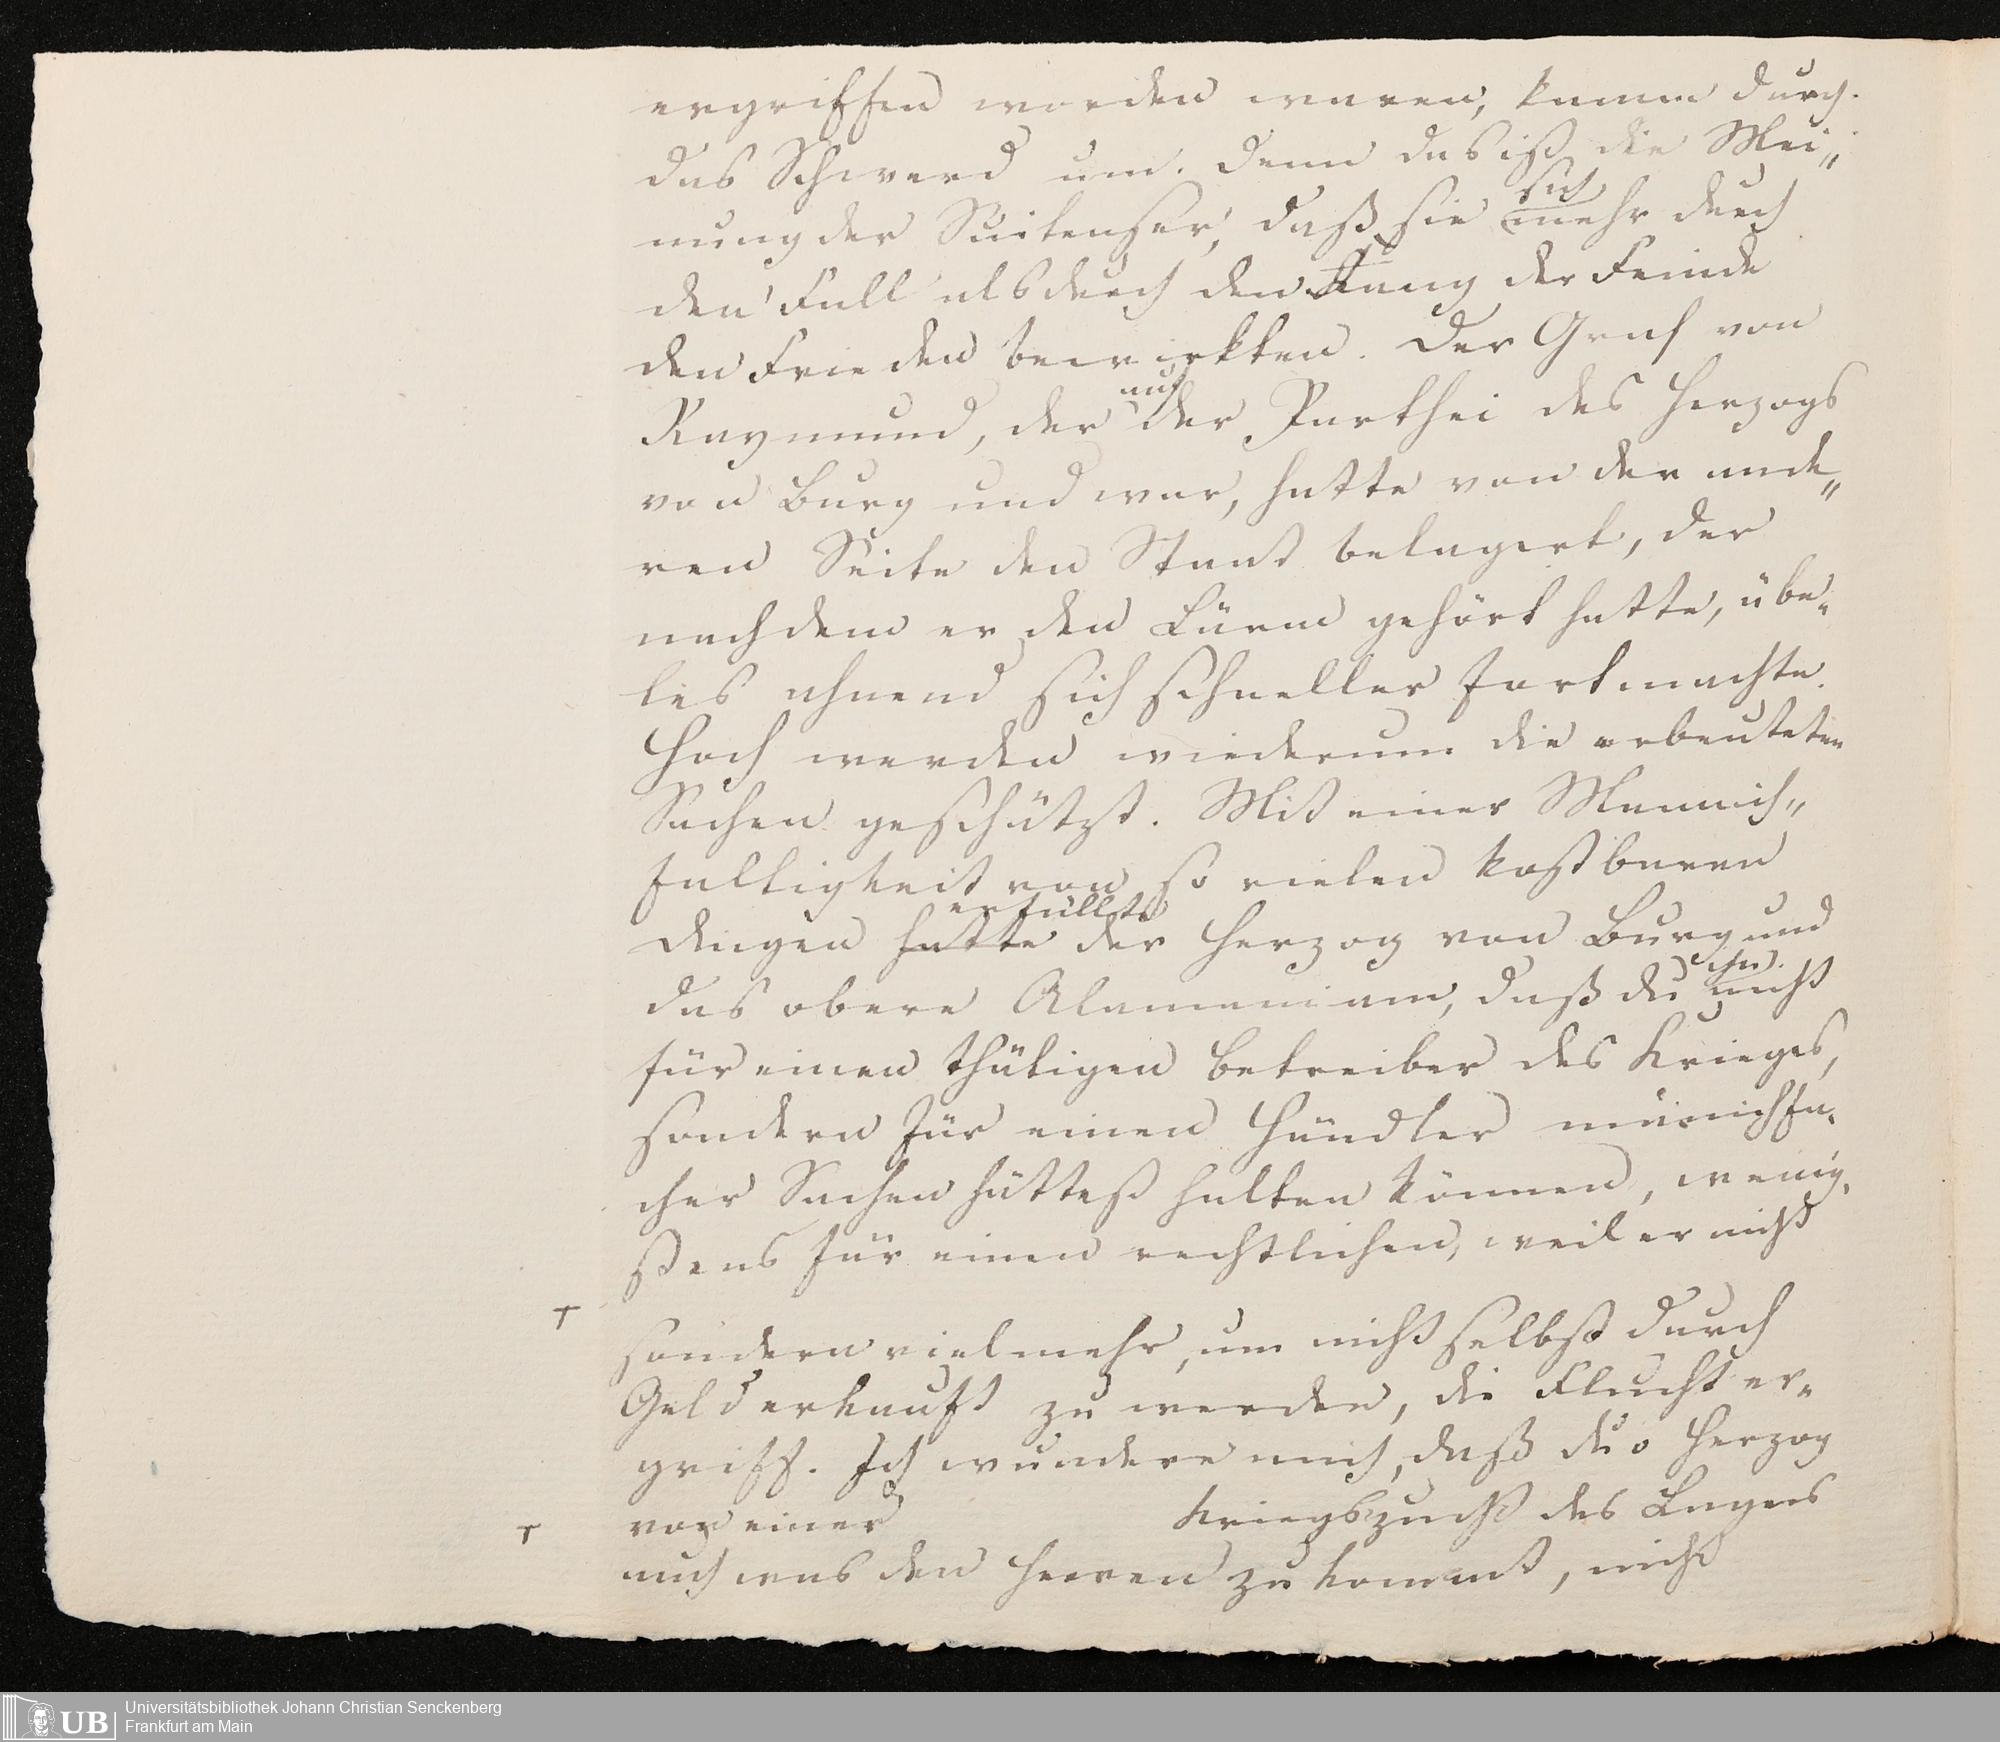 ergriffen worden waren, kamen durch
das Schwerd um. Denn das ist die Mei„
sich
nung der Suitenser, daß sie mehr durch
den Fall als durch den Fang der Feinde
den Frieden bewirkten. Der Graf von
auf
Raymund, der der Parthei des Herzogs
von Burgund war, hatte von der ande„
ren Seite den Stand belagert, der
nachdem er den Lärm gehört hatte, übe„
les ahnend sich schneller fortmachte.
Hoch werden wiederum die erbeuteten
Sachen geschätzt. Mit einer Mannich„
faltigkeit von so vielen kostbaren
erfüllte
Dingen hatte der Herzog von Burgund
ihn
das obere Alamaniam, daß du nicht
für einen thätigen Betreiber des Krieges,
sondern für einen Händler manichfa„
cher Sachen hättest halten können, wenig„
stens für einen rechtlichen, weil er nicht
+
sondern vielmehr, um nicht selbst durch
Geld erkauft zu werden, die Flucht er„
griff. Ich wundere mich, daß der Herzog
+ von einer Kriegszucht des Lagers
auch was den Herren zukommt, nicht
Universitätsbibliothek Johann Christian Senckenberg
UB Frankfurt am Main